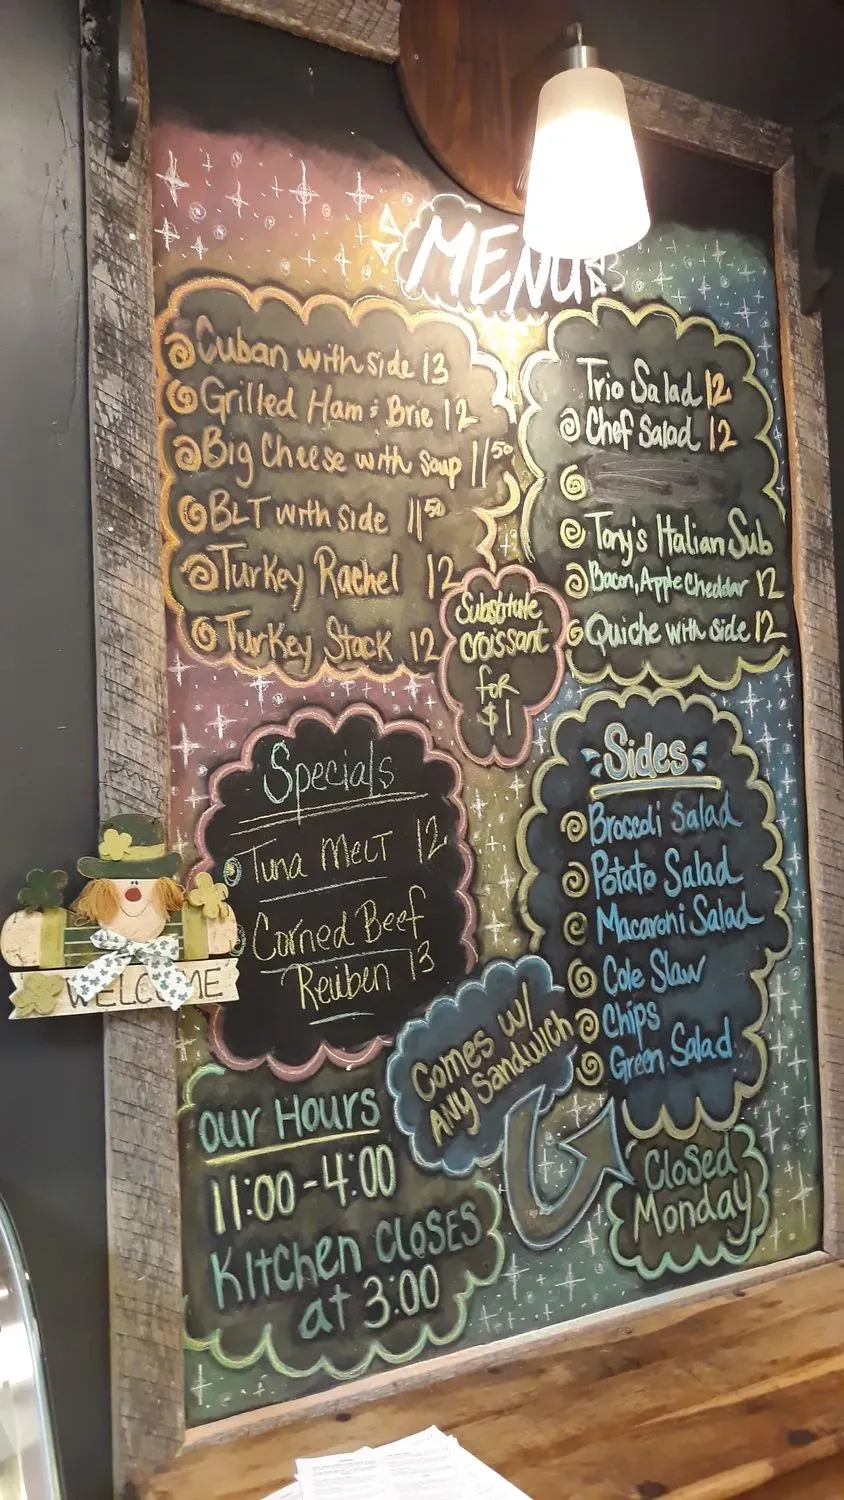 MENU
Cuban with side 13
Grilled Ham & Brie 12
Big Cheese with soup 11.50
BLT with side 11.50
Turkey Rachel 12
Turkey Stack 12
Substitute
croissant
for
$1
Trio Salad 12
Chef Salad 12
Tony's Italian Sub
Bacon, Apple Cheddar 12
Quiche with side 12
Specials
Tuna MELT 12
Corned Beef
Reuben 13
Sides
Broccoli Salad
Potato Salad
Macaroni Salad
Cole Slaw
Chips
Green Salad
Comes w/
ANY SANDWICH
our Hours
11:00-4:00
Kitchen closes
at 3:00
Closed
Monday
WELCOME